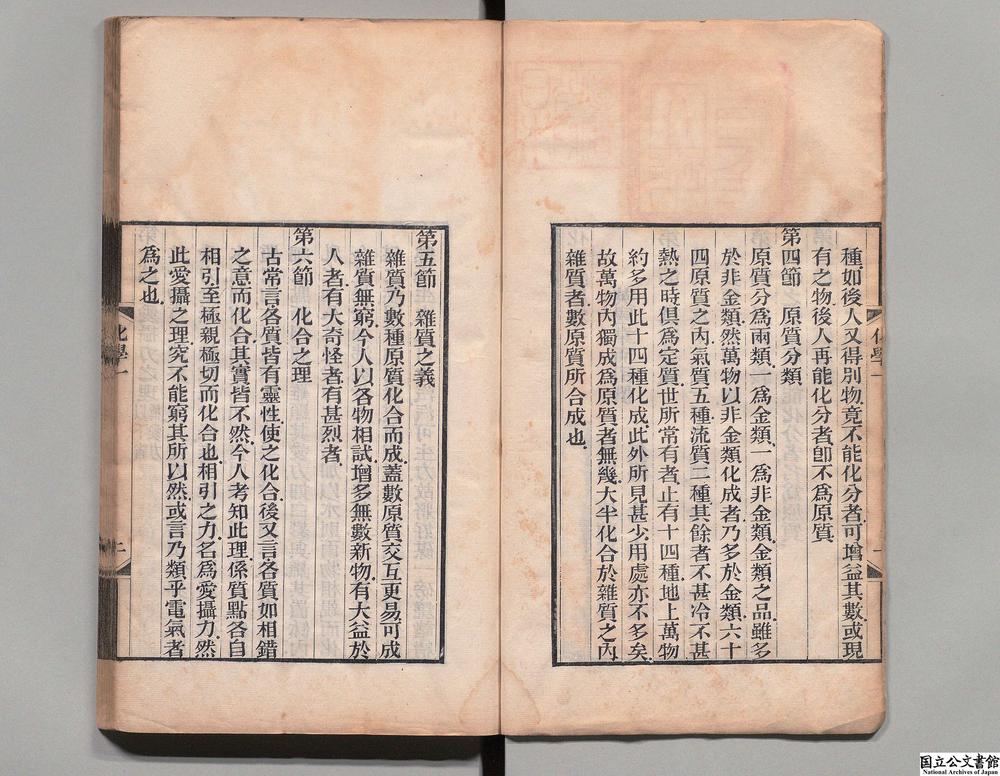 種如後人又得別物竟不能化分者可增益其數或現
有之物後人再能化分者卽不爲原質
第四節　原質分類
原質分爲兩類一爲金類一爲非金類金類之品雖多
於非金類然萬物以非金類化成者乃多於金類六十
四原質之內氣質五種流質二種其餘者不甚冷不甚
熱之時俱爲定質世所常有者止有十四種地上萬物
約多用此十四種化成此外所見甚少用處亦不多矣
故萬物內獨成爲原質者無幾大半化合於雜質之內
雜質者數原質所合成也
化學一
二
第五節　雜質之義
雜質乃數種原質化合而成蓋數原質交互更易可成
雜質無窮今人以各物相試增多無數新物有大益於
人者有大奇怪者有甚烈者
第六節　化合之理
古常言各質皆有靈性使之化合後又言各質如相錯
之意而化合其實皆不然今人考知此理係質點各自
相引至極親極切而化合也相引之力名爲愛攝力然
此愛攝之理究不能窮其所以然或言乃類乎電氣者
爲之也
国立公文書館
National Archives of Japan